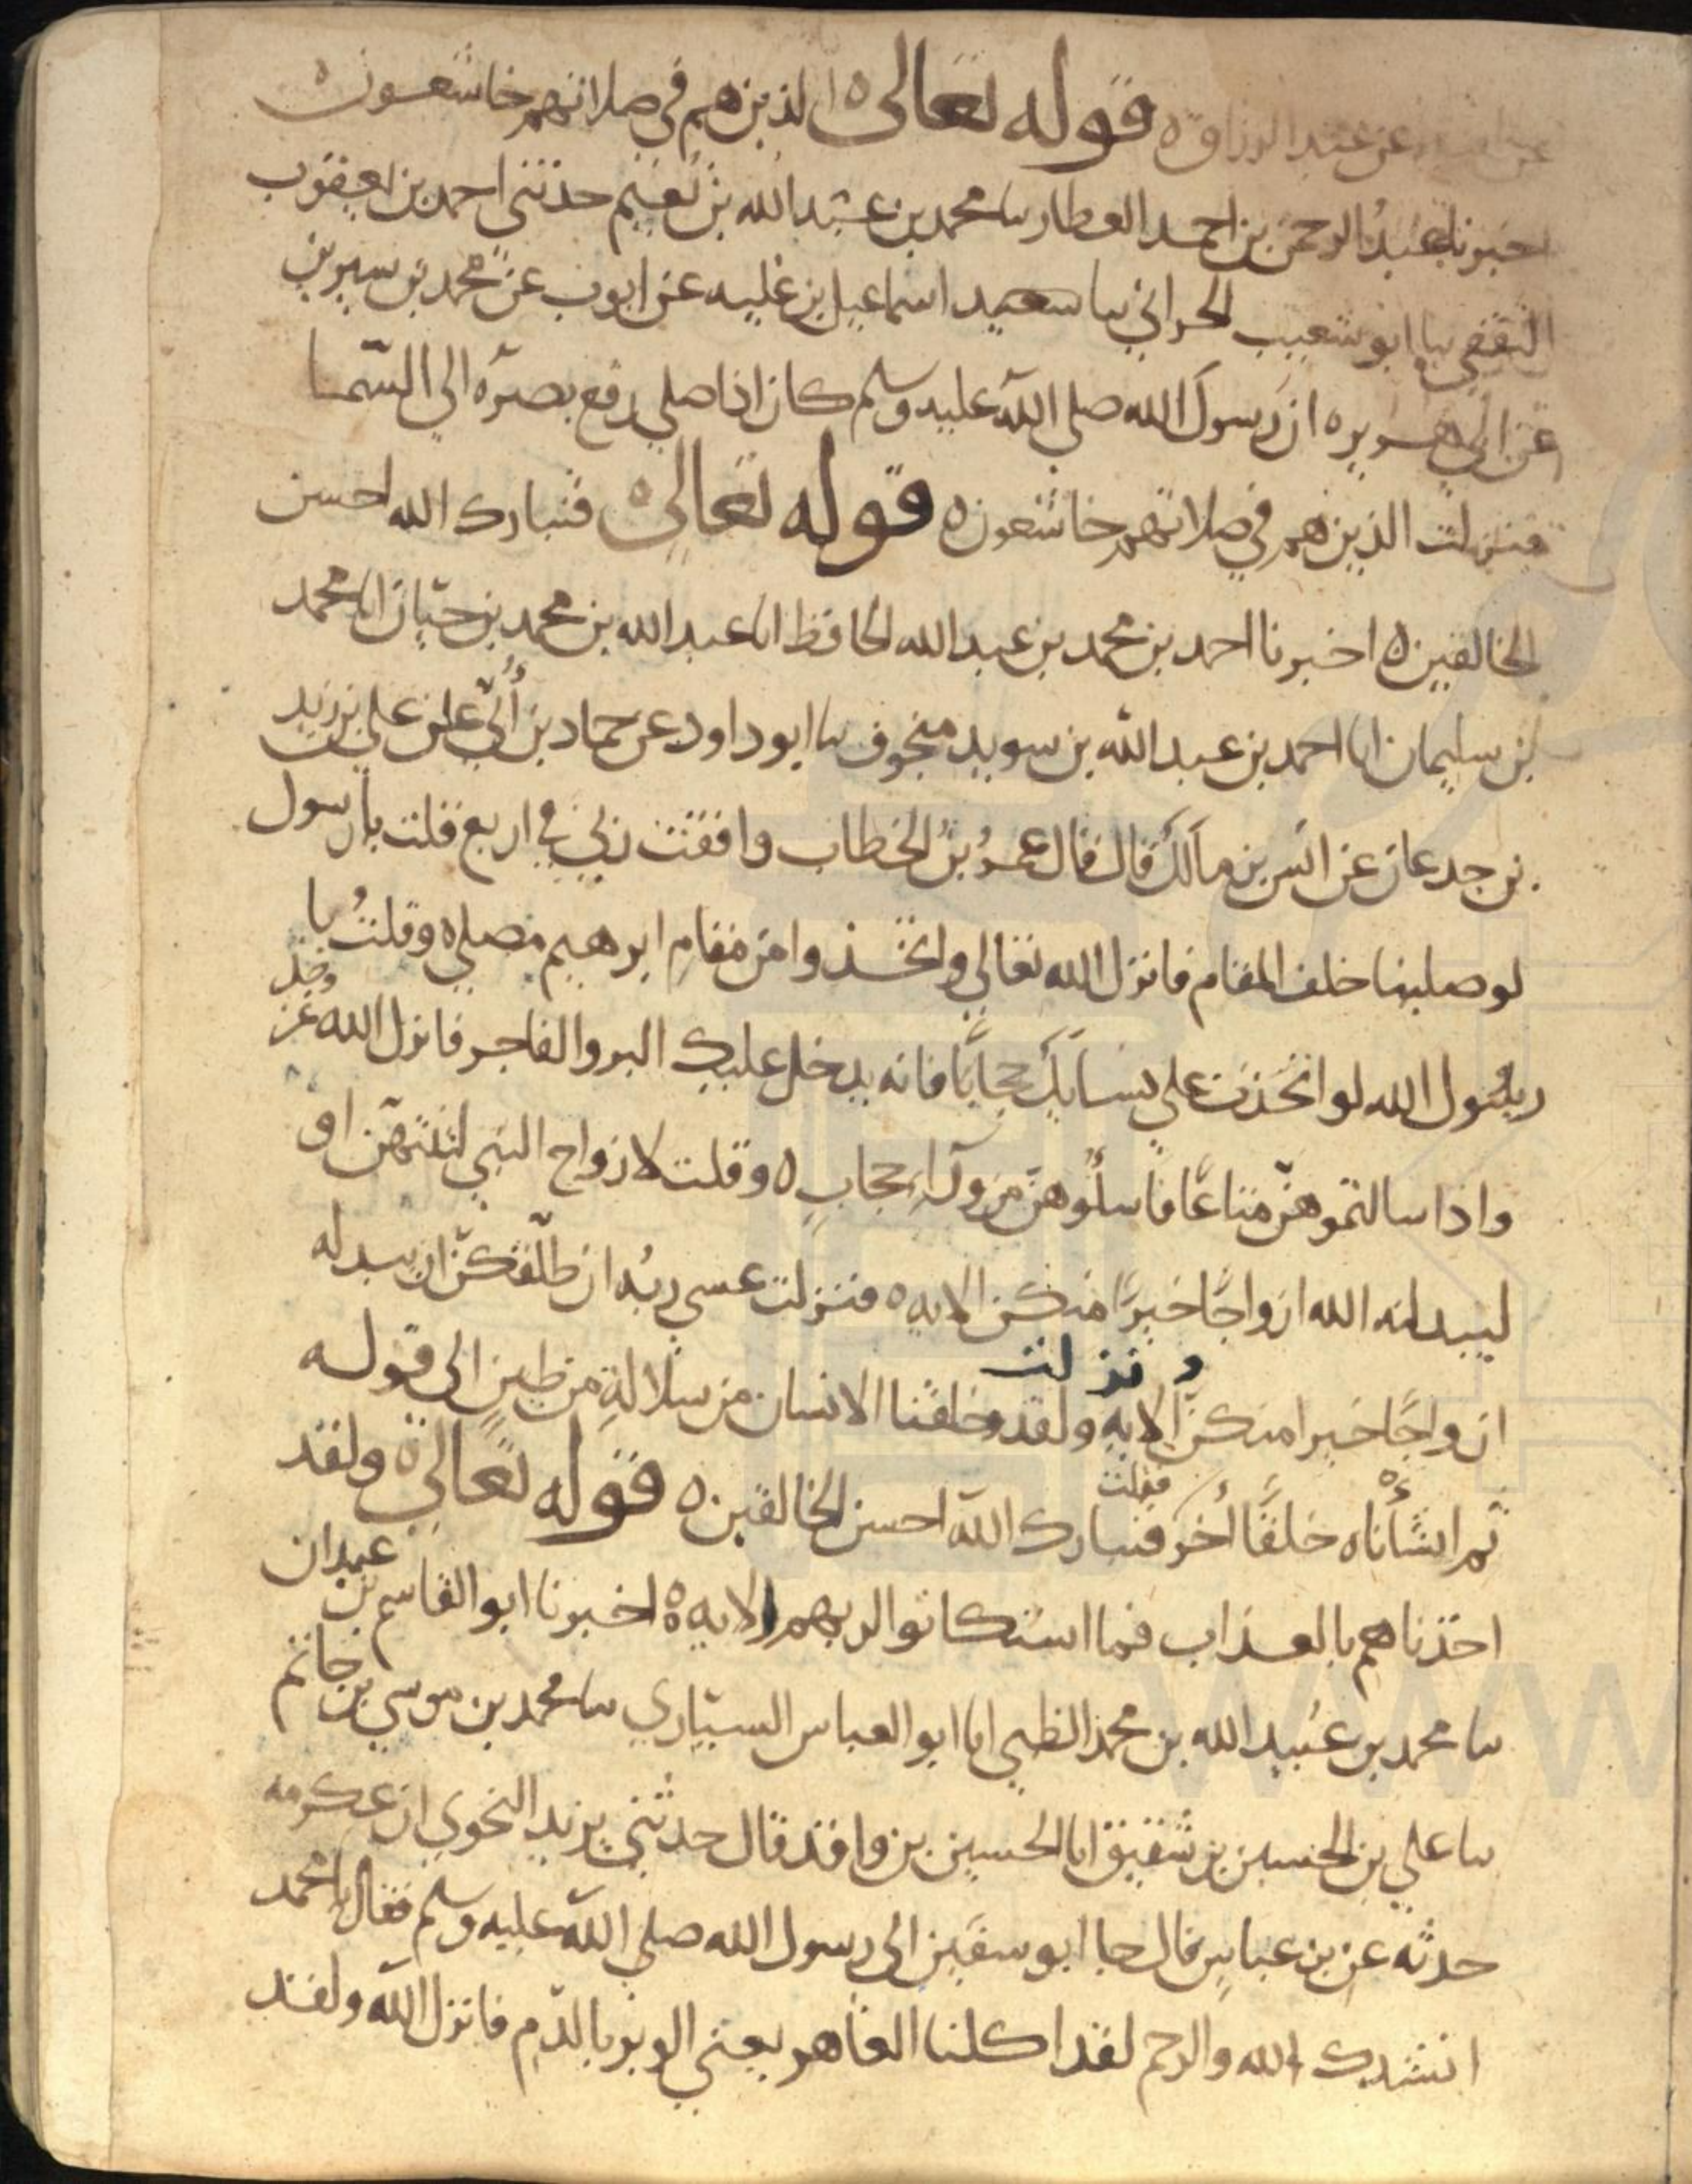 عن ابيه عن عبد الرزاق ه قوله تعالى ه الذين هم في صلاتهم خاشعون ه
اخبرنا عبد الرحمن بن احمد العطار سا محمد بن عبد الله بن نعيم حدثني احمد بن يعقوب
الثقفي سا ابو شعيب الحراني سا سعيد اسماعيل بن علية عن ايوب عن محمد بن سيرين
عن ابي هريره ان رسول الله صلى الله عليه وسلم كان اذا صلى رفع بصره الي السما
فنزلت الذين هم في صلاتهم خاشعون ه قوله تعالى ه فتبارك الله احسن
الخالقين ه اخبرنا احمد بن محمد بن عبد الله الحافظ انا عبد الله بن محمد بن حيان انا محمد
بن سليمان انا احمد بن عبد الله بن سويد منجوف سا ابو داود عن حماد بن عن علي بن زيد
بن جدعان عن انس بن مالك قال قال عمر بن الخطاب وافقت ربي في اربع قلت يا رسول
لو صلينا خلف المقام فانزل الله تعالي واتخذوا من مقام ابرهيم مصلي ه وقلت يا
رسول الله لو اتخذت علي نسايك حجابا فانه يدخل عليك البر والفاجر فانزل الله عز وجل
واذا سالتموهن متاعا فاسلوهن من ورآء حجاب ه وقلت لازواج النبي لتنتهن او
ليبدلنه الله ازواجا خيرا منكن الايه ه فنزلت عسي ربه ان طلقكن ان يبدله
ازواجا خيرا منكن الايه ونزلت ولقد خلقنا الانسان من سلالة من طين الى قوله
ثم انشأناه خلقا أخر فقلت فتبارك الله احسن الخالقين ه قوله تعالى ه ولقد
اخذناهم بالعذاب فما استكانوا لربهم الايه ه اخبرنا ابو القاسم بن عبدان
سا محمد بن عبيد الله بن محمد الظبي انا ابو العباس السياري سا محمد بن موسي بن حاتم
سا علي بن الحسين بن شقيق انا الحسين بن واقد قال حدثني يزيد النحوي ان عكرمه
حدثه عن بن عباس قال جا ابو سفين الى رسول الله صلي الله عليه وسلم فقال يا محمد
انشدك الله والرحم لقد اكلنا العاهر يعني الوبر بالدم فانزل الله ولقد